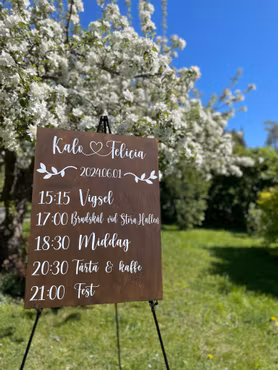 Kalo Felicia
2024.06.01
15:15 Vigsel
17:00 Brudskål vid Stora Hallen
18:30 Middag
20:30 Tårta & kaffe
21:00 Fest